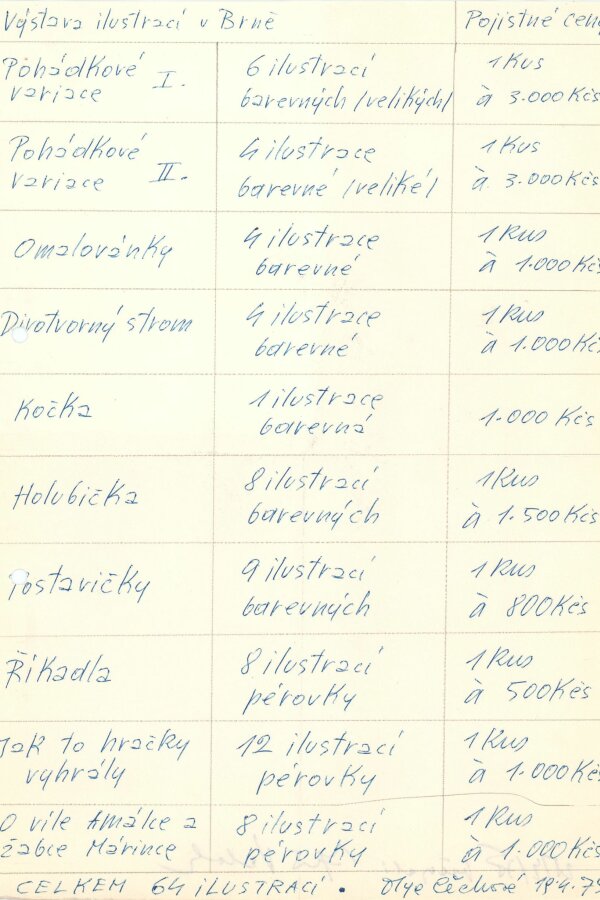 Výstava ilustrací v Brně Pojistné ceny
Pohádkové I. 6 ilustrací 1 Kus
variace barevných /velikých/ à 3.000 Kčs
Pohádkové 4 ilustrace 1 Kus
variace II. barevné /veliké/ à 3.000 Kčs
Omalovánky 4 ilustrace 1 Kus
barevné à 1.000 Kčs
Divotvorný strom 4 ilustrace 1 Kus
barevné à 1.000 Kčs
Kočka 1 ilustrace 1.000 Kčs
barevná
Holubička 8 ilustrací 1 Kus
barevných à 1.500 Kčs
Postavičky 9 ilustrací 1 Kus
barevných à 800 Kčs
Říkadla 8 ilustrací 1 Kus
pérovky à 500 Kčs
Jak to hračky 12 ilustrací 1 Kus
vyhrály pérovky à 1.000 Kčs
O víle Amálce a 8 ilustrací 1 Kus
žabce Márince pérovky à 1.000 Kčs
CELKEM 64 ILUSTRACÍ . Olga Čechová 19.4.79